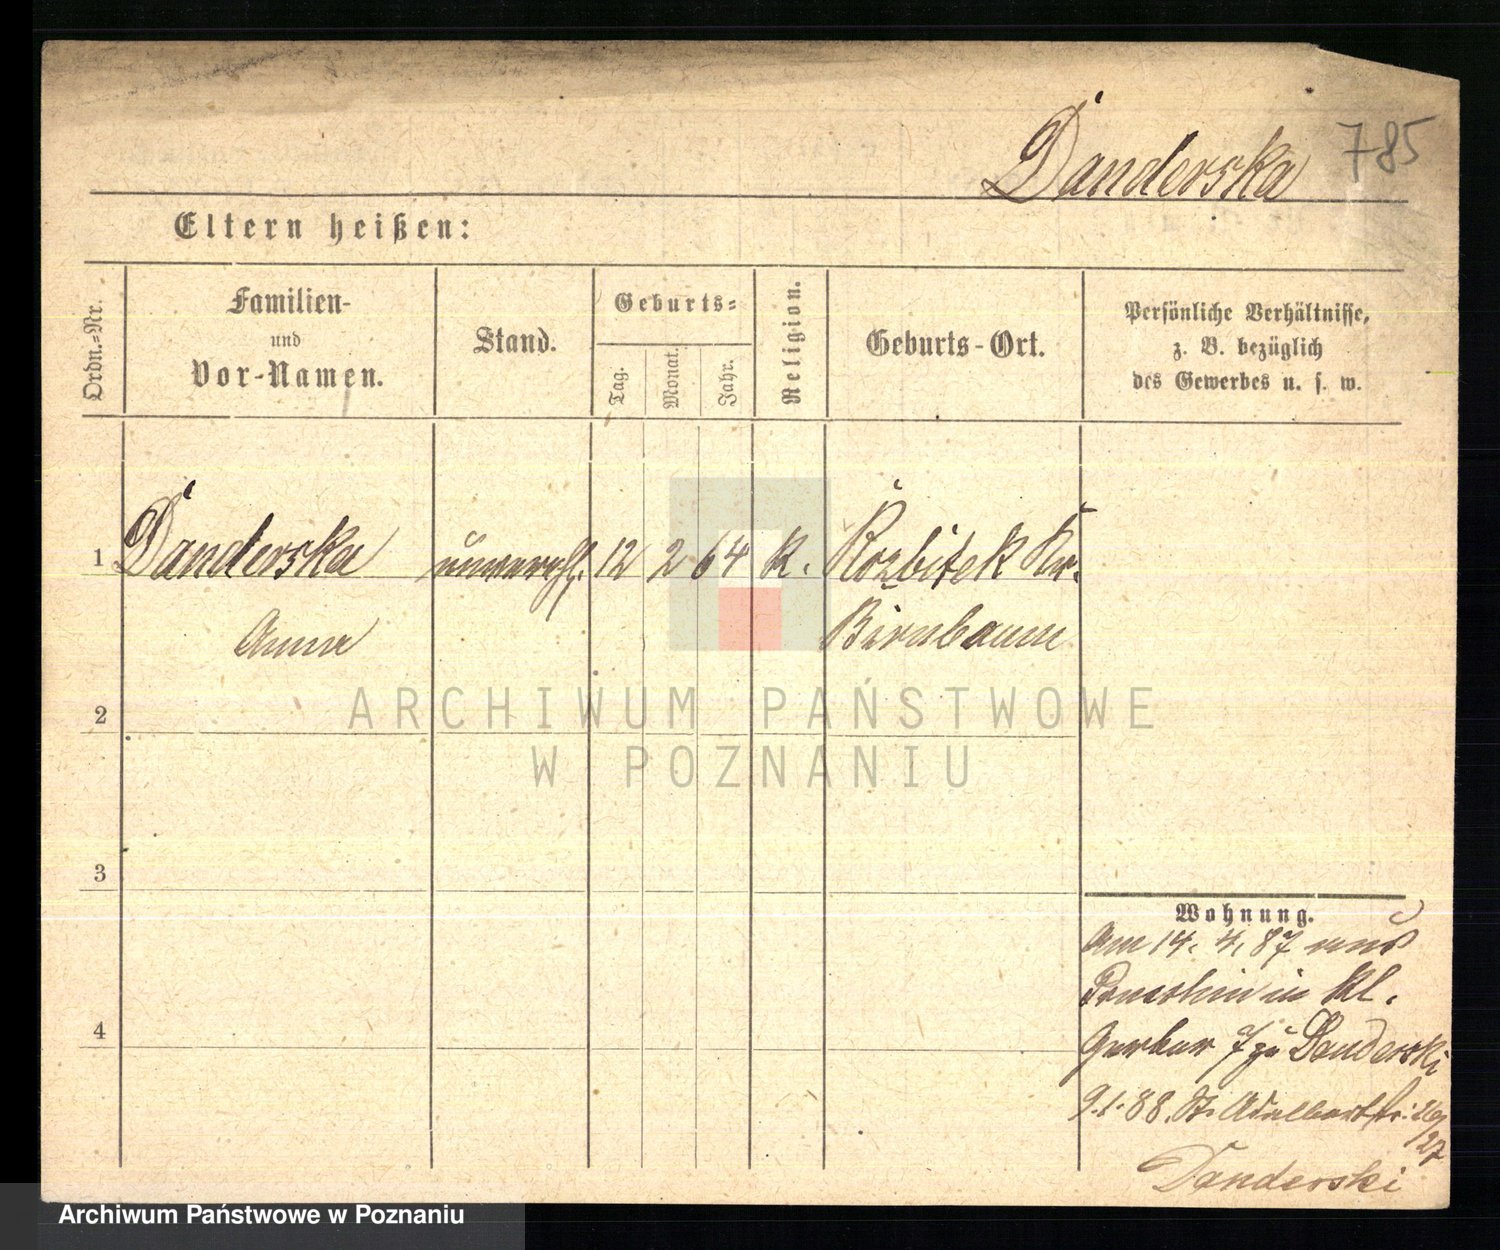 Danderska 785
Eltern heißen:
Ordn.-Nr.
Familien-
und
Vor-Namen.
Stand.
Geburts-
Tag.
Monat.
Jahr.
Religion.
Geburts-Ort.
Persönliche Verhältnisse,
z. B. bezüglich
des Gewerbes u. s. w.
1 Danderska unvereh. 12 2 64 K. Rozbitek Kr.
Anna Birnbaum
2
3
4
Wohnung.
Am 14. 4. 87 aus
in Kl.
Gerber 7 zu Danderski
9.1.88. St. Adalbertstr. 26/27
Danderski
ARCHIWUM PAŃSTWOWE
W POZNANIU
Archiwum Państwowe w Poznaniu